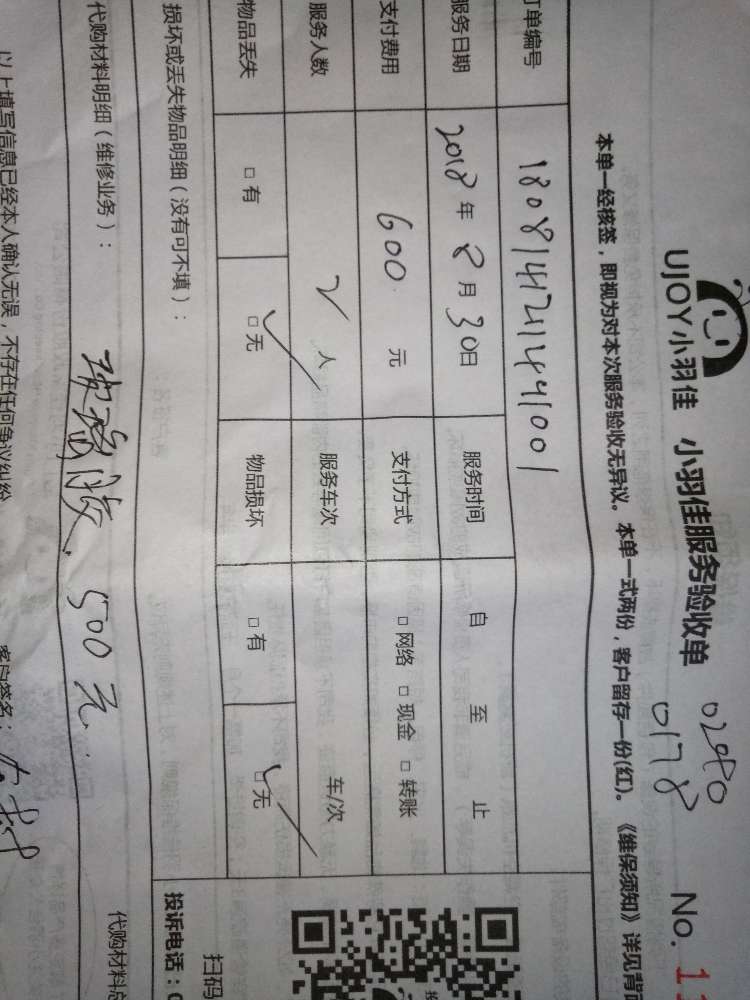 UJOY小羽佳 小羽佳服务验收单 No. 1
0290
0178
本单一经核签，即视为对本次服务验收无异议。本单一式两份，客户留存一份(红)。《维保须知》详见背面
订单编号 180814121144001
服务日期 2018年8月30日 服务时间 自 至 止
支付费用 600 元 支付方式 □网络 □现金 □转账
服务人数 2人 服务车次 车/次
物品丢失 □有 □无 ✓ 物品损坏 □有 □无 ✓
损坏或丢失物品明细（没有可不填）：
代购材料明细（维修业务）： 玻璃胶 500元 代购材料总
以上填写信息已经本人确认无误，不存在任何争议纠纷 客户签名：
扫码
投诉电话：